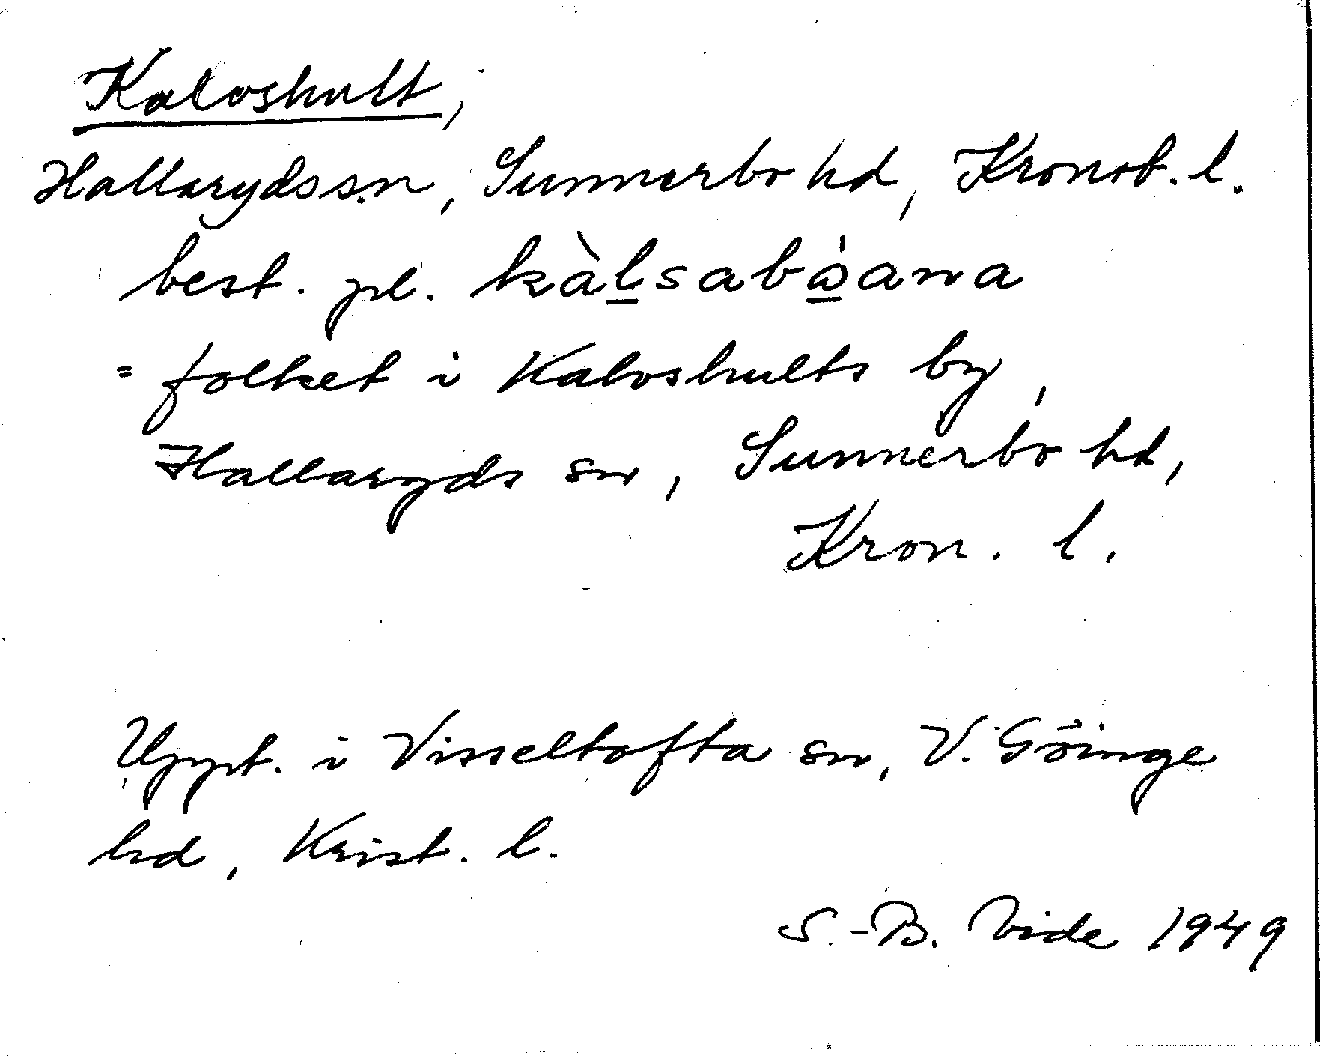 Kalvshult,
Hallaryds sn, Sunnerbo hd, Kronob. l.
best. pl. kàl̲sabo̲̍ana
= folket i Kalvshults by,
Hallaryds sn, Sunnerbo hd,
Kron. l.
Uppt. i Visseltofta sn, V. Göinge
hd, Krist. l.
S.-B. Vide 1949